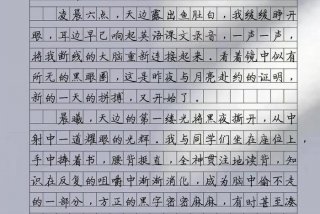 凌晨六点，天边露出鱼肚白，我缓缓睁开
眼，耳边早已响起英语课文录音，一声一声，
将我断线的大脑重新连接起来。看着镜中似有
所无的黑眼圈，这是昨夜与月亮赴约的证明，
新的一天的拼搏，又开始了。
晨曦，天边的第一缕光将黑夜撕开，从中
射中一道耀眼的光辉，我与同学们坐在座位上，
手中捧着书，腰背挺直，全神贯注地读背，知
识在反复的咀嚼中渐渐消化，成为脑中偷不走
的一部分，方正的黑字密密麻麻，有时甚至凑